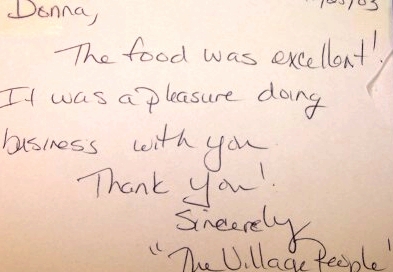 Donna,
The food was excellent!
It was a pleasure doing
business with you
Thank you!
Sincerely
"The Village People"